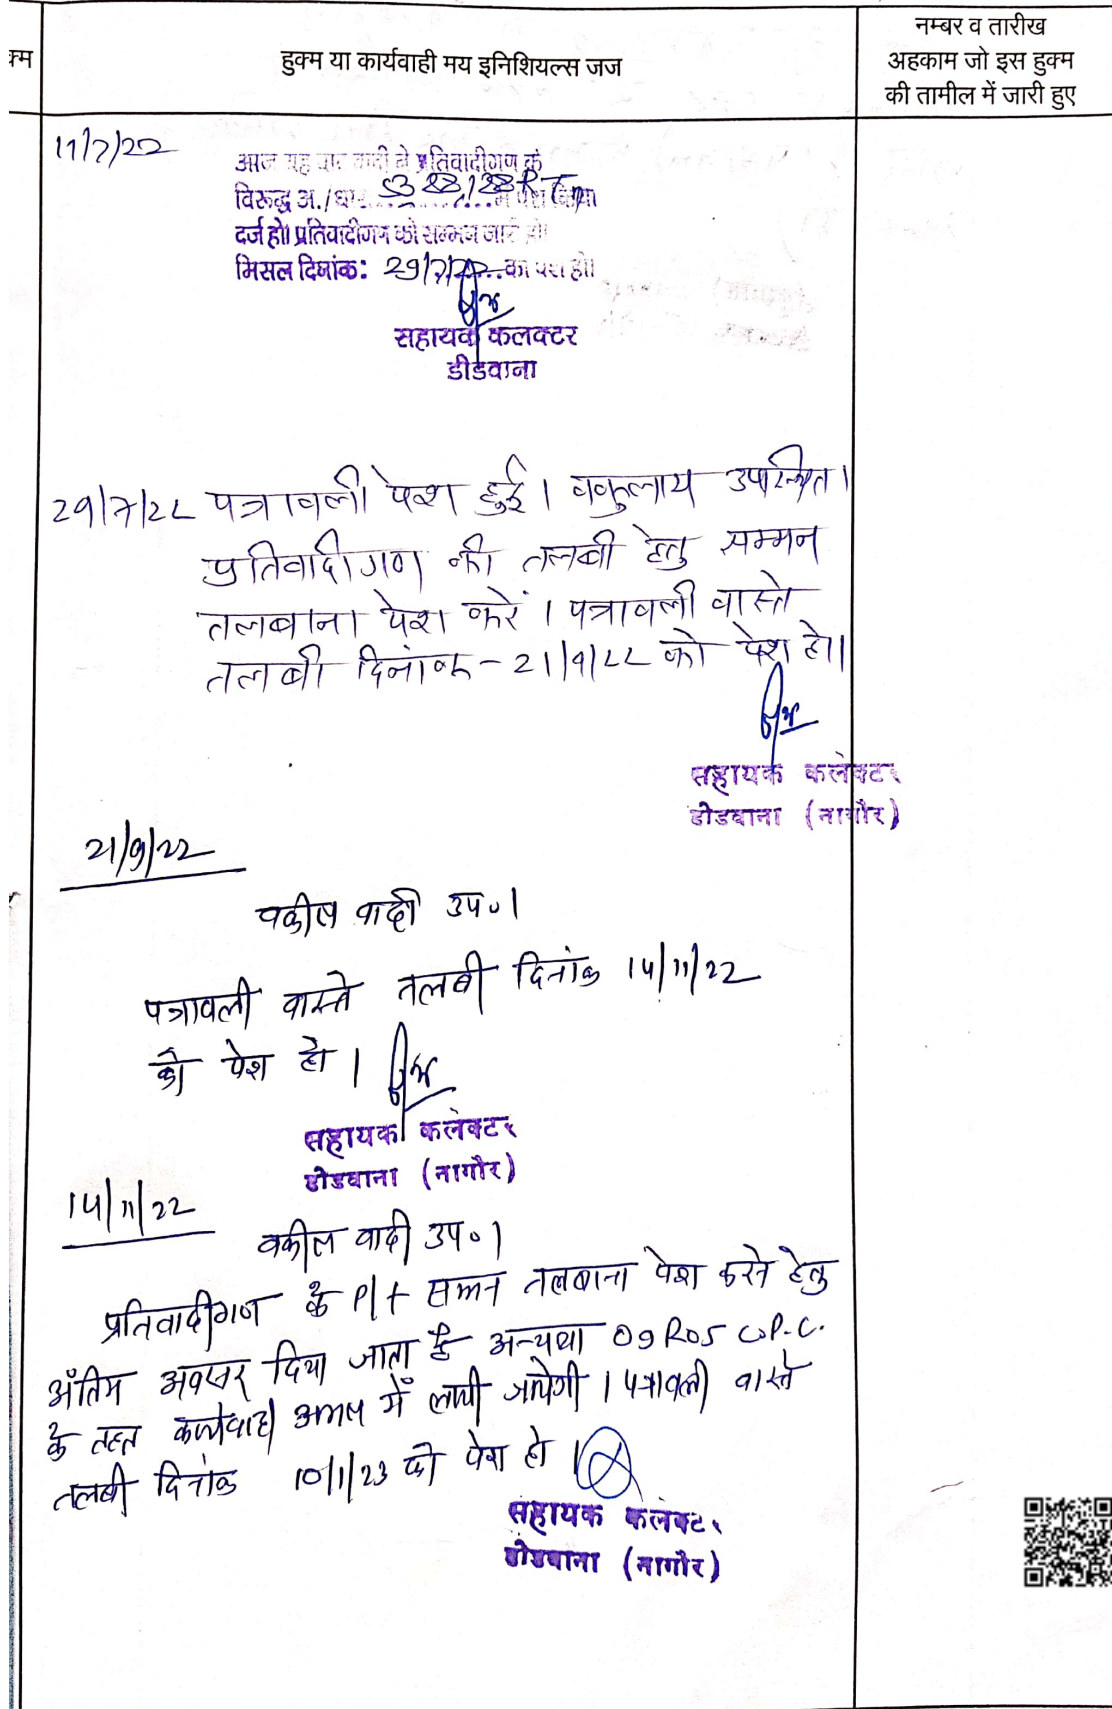 क्म
हुक्म या कार्यवाही मय इनिशियल्स जज
नम्बर व तारीख
अहकाम जो इस हुक्म
की तामील में जारी हुए
11/7/22
आज यह वाद वादी ने प्रतिवादीगण के
विरूद्ध अ./धारा
दर्ज हो। प्रतिवादीगण को सम्मन जारी हो।
मिसल दिनांक: 29/7/22 का पेश हो।
सहायक कलक्टर
डीडवाना
29/7/22 पत्रावली पेश हुई। वकुलाय उपस्थित।
प्रतिवादीगण की तलबी हेतु सम्मन
तलबाना पेश करें। पत्रावली वास्ते
तलबी दिनांक - 21/9/22 को पेश हो।
सहायक कलेक्टर
डीडवाना (नागौर)
21/9/22
वकील वादी उप०।
पत्रावली वास्ते तलबी दिनांक 14/11/22
को पेश हो।
सहायक कलेक्टर
डीडवाना (नागौर)
14/11/22
वकील वादी उप०।
प्रतिवादीगण के P/f सम्मन तलबाना पेश करने हेतु
अंतिम अवसर दिया जाता है अन्यथा O9 R05 C.P.C.
के तहत कार्यवाही अमल में लायी जायेगी। पत्रावली वास्ते
तलबी दिनांक 10/1/23 को पेश हो।
सहायक कलेक्टर
डीडवाना (नागौर)